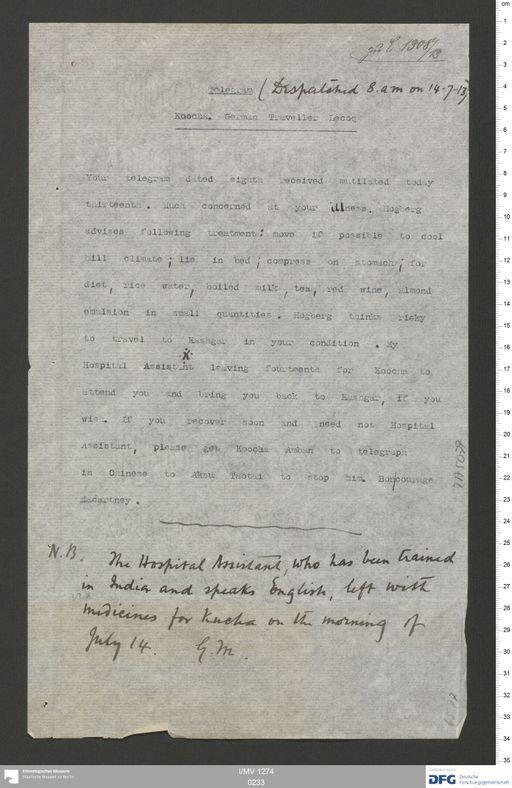 zu E. 1308/13
Telegram (Despatched 8.am on 14-7-13)
Koocha. German Traveller Lecoq
Your telegram dated eighth received mutilated today
thirteenth. Much concerned at your illness. Hogberg
advises following treatment: move if possible to cool
hill climate; lie in bed; compress on stomach; for
diet, rice water, boiled milk, tea, red wine, almond
emulsion in small quantities. Hogberg thinks risky
to travel to Kashgar in your condition. My
x
Hospital Assistant leaving fourteenth for Koocha to
attend you and bring you back to Kashgar, if you
wish. If you recover soon and need not Hospital
Assistant, please get Koocha Amban to telegraph
in Chinese to Aksu Taotai to stop him. Bon/courage
Macartney.
N.B. The Hospital Assistant, who has been trained
in India and speaks English, left with
medicines for Kucha on the morning of
July 14. G.M.
Ethnologisches Museum
Staatliche Museen zu Berlin
I/MV 1274
0233
DFG Deutsche
Forschungsgemeinschaft
cm
1
2
3
4
5
6
7
8
9
10
11
12
13
14
15
16
17
18
19
20
21
22
23
24
25
26
27
28
29
30
31
32
33
34
35